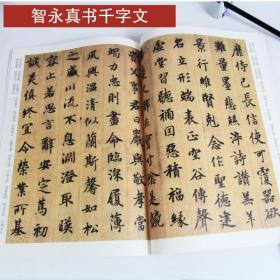 智永真书千字文
靡恃己長信使可覆器欲
難量墨悲絲淬詩讚羔羊
景行維賢剋念作聖德建
名立形端表正空谷傳聲
虛堂習聽禍因惡積福緣
善慶尺璧非寶寸陰是競
資父事君曰嚴與敬孝當
竭力忠則盡命臨深履薄
夙興溫凊似蘭斯馨如松
之盛川流不息淵澄取暎
容止若思言辭安定篤初
誠美慎終宜令榮業所基